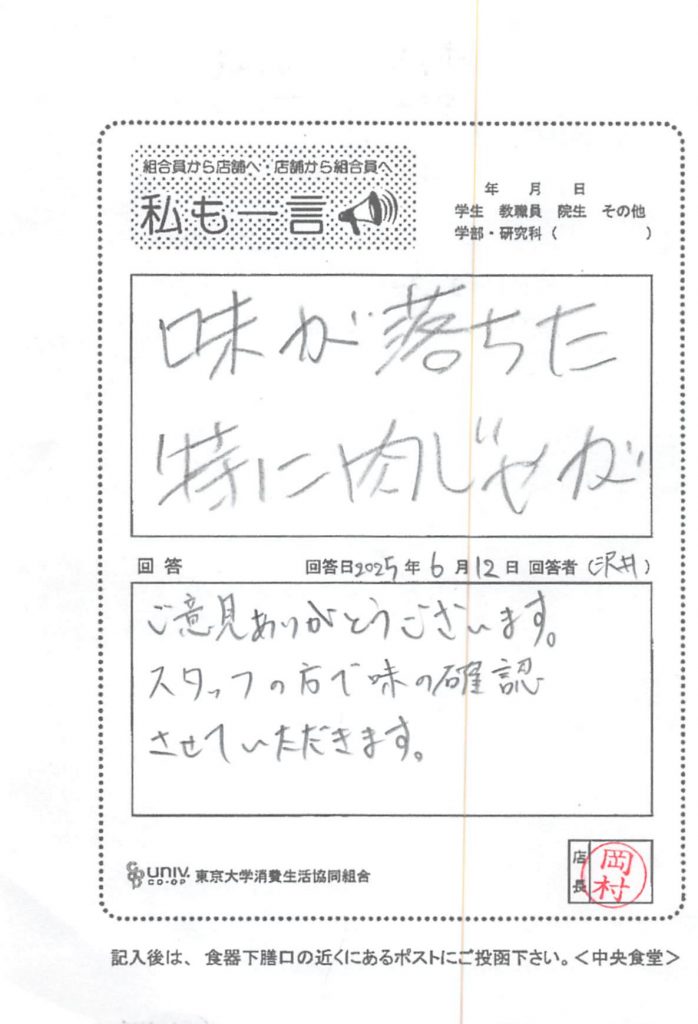 組合員から店舗へ・店舗から組合員へ
私も一言
年 月 日
学生 教職員 院生 その他
学部・研究科( )
味が落ちた
特に肉じゃが
回答 回答日2025年6月12日 回答者(沢井)
ご意見ありがとうございます。
スタッフの方で味の確認
させていただきます。
UNIV. CO-OP 東京大学消費生活協同組合
店長 岡村
記入後は、食器下膳口の近くにあるポストにご投函下さい。<中央食堂>